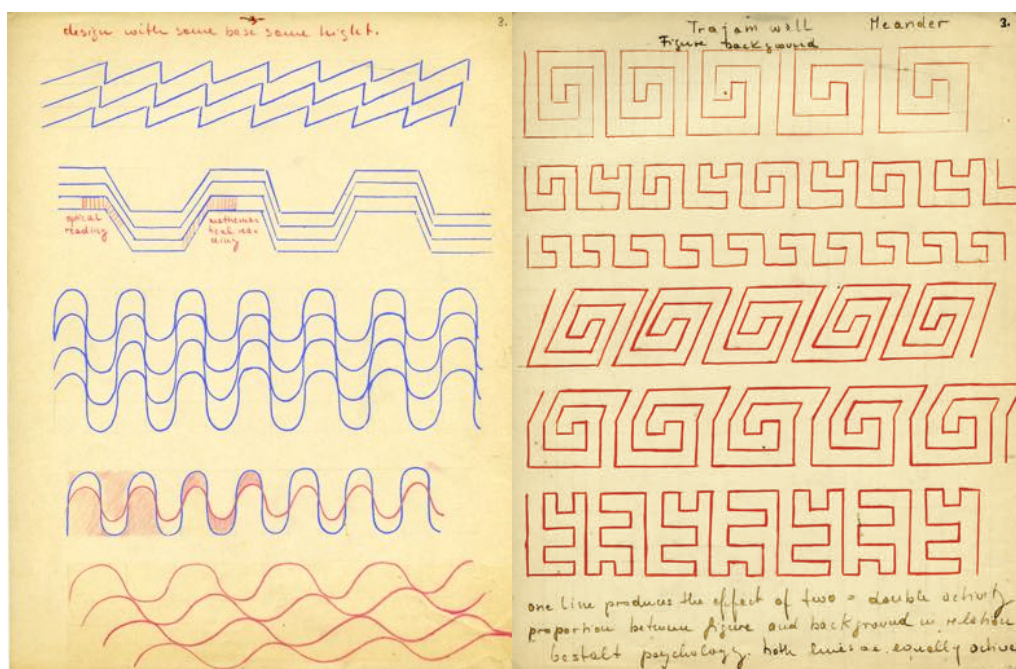 3.
design with same base same hight.
optical
reading
mathema
tical rea
ding
Trajam wall Meander 3.
Figure background
one line produces the effect of two = double activity
proportion between figure and background in relation
Gestalt psychology. both lines are equally active